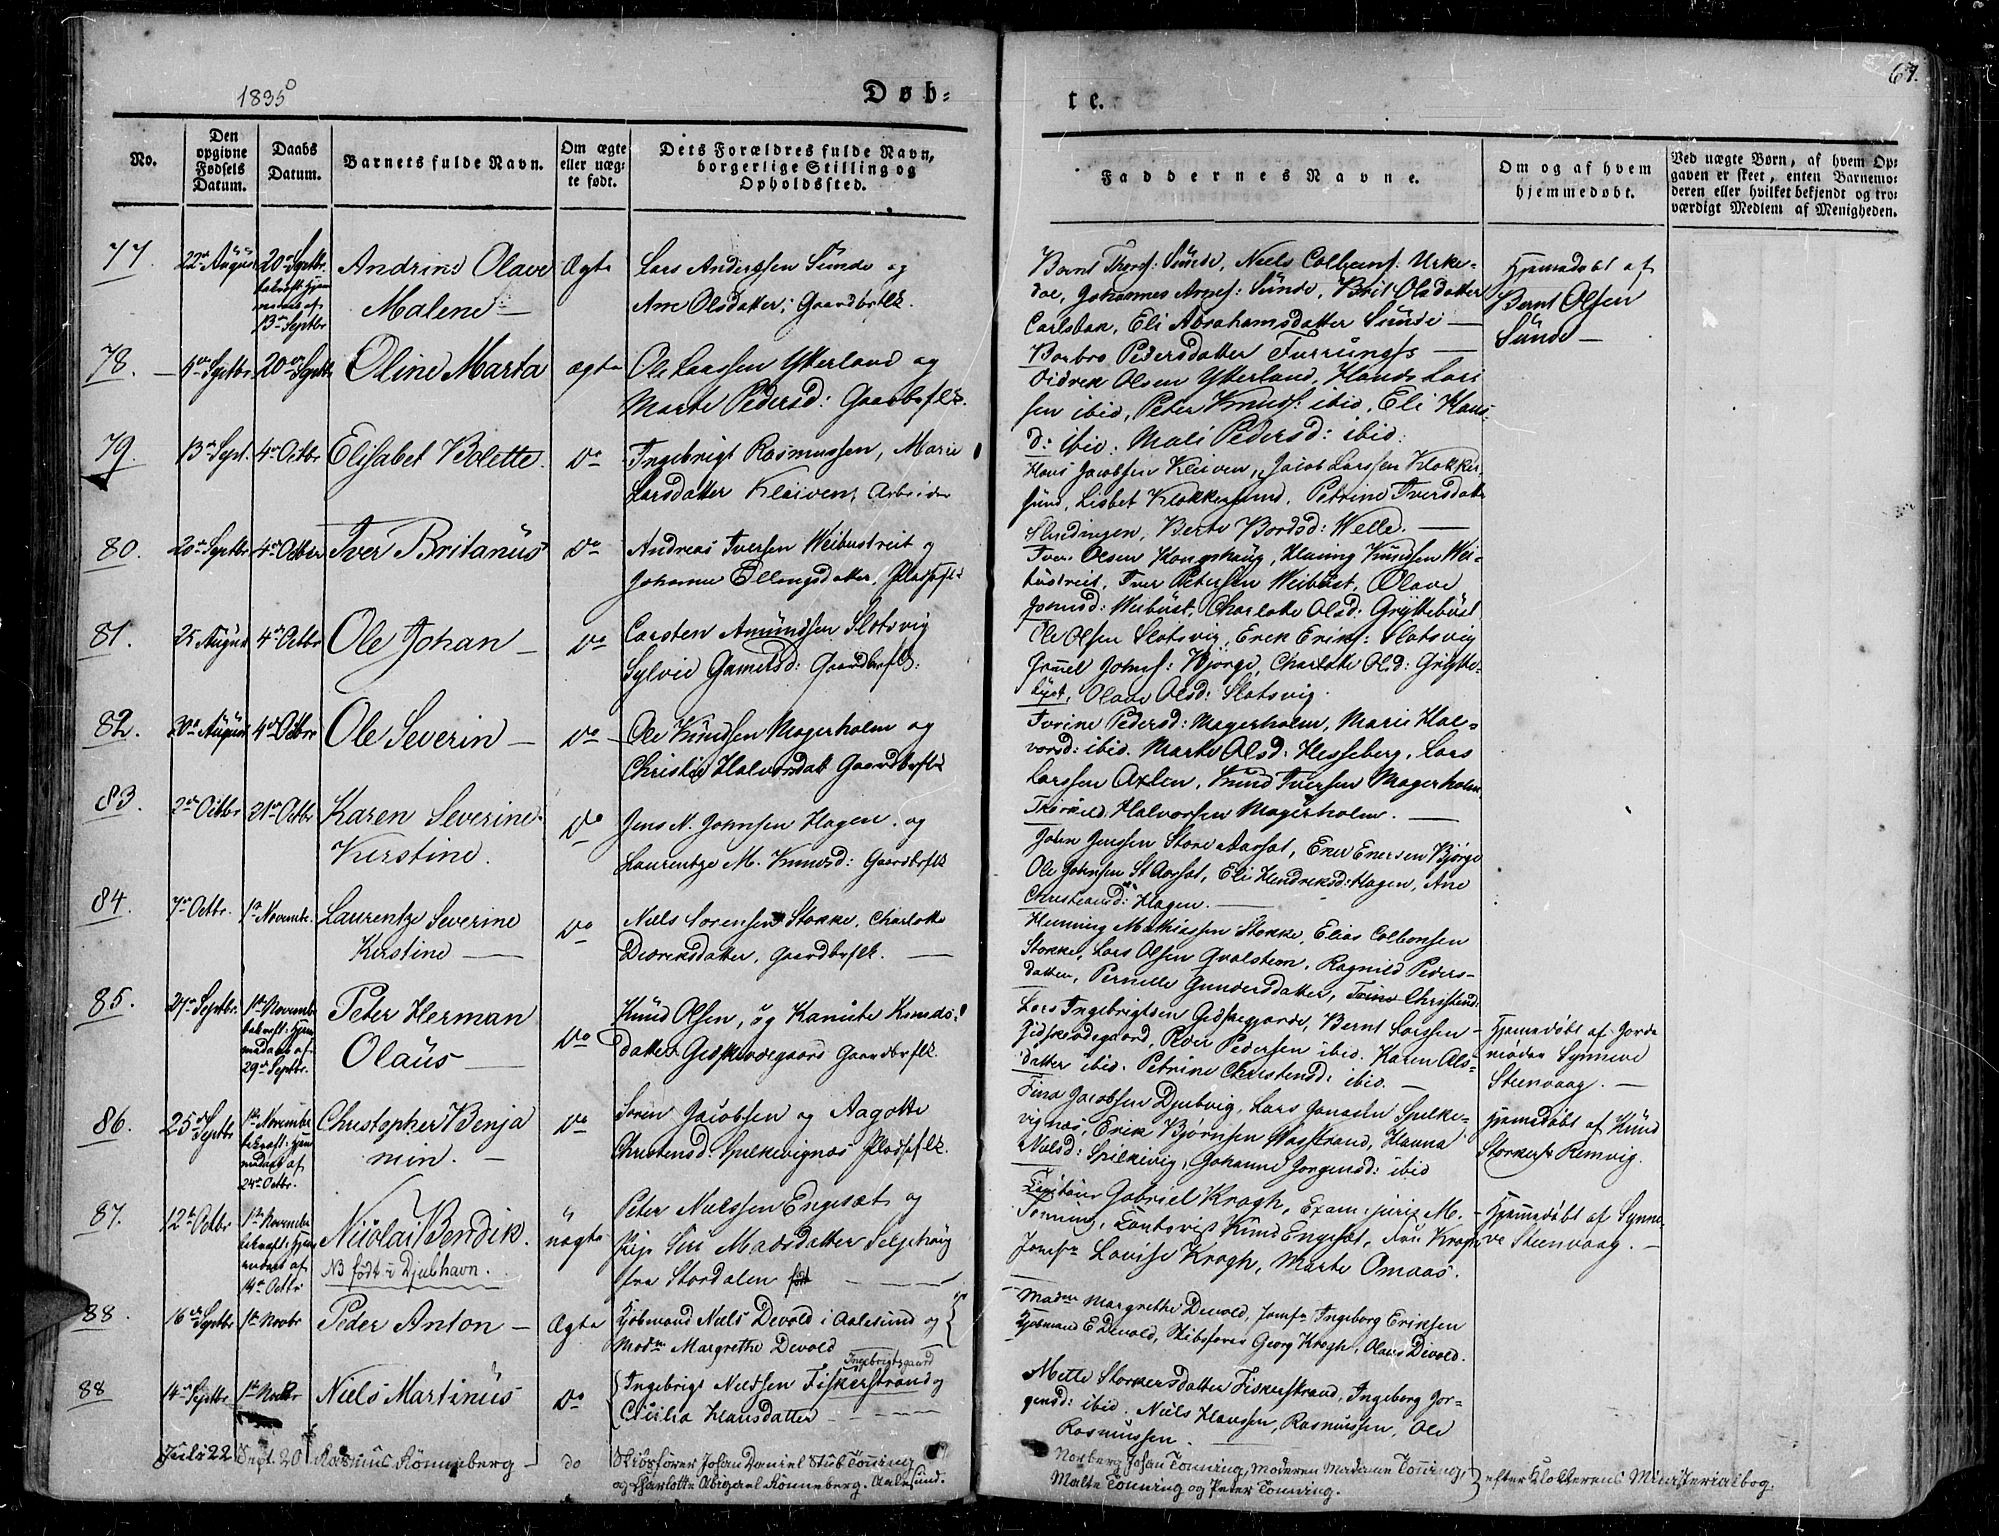 1835
Døb-
te.
67.
No.
Den opgivne Fødsels Datum.
Daabs Datum.
Barnets fulde Navn.
Om ægte eller uæg-
te født.
Dets Forældres fulde Navn,
borgerlige Stilling og
Opholdssted.
Faddernes Navne.
Om og af hvem
hjemmedøbt.
Ved uægte Børn, af hvem Op-
gaven er skeet, enten Barnemo-
deren eller hvilket bekjendt og tro-
værdigt Medlem af Menigheden.
77. 22de August 20de Septbr.
13de Septbr
Andrine Olave
Malene —
Ægte
Lars Anderssen Sunde og
Ane Olsdatter, Gaardbrflk.
Bernt Thors: Sunde, Niels Colbens: Urke-
dal, Johannes Arnes: Sunde, Brit Olsdatter
Carlsbak, Eli Abrahamsdatter Sunde —
Hjemmedøbt af
Bernt Olsen
Sunde —
78. 20de Septbr
Oline Marta
ægte
Ole Larssen Ytterland og
Marte Pedersd: Gaardbrflk.
Barbro Pedersdatter Furrungs —
Didrek Olsen Ytterland, Hans Lars
sen ibid, Peter Knuds: ibid, Eli Hans
d: ibid. Mali Pedersd: ibid.
79. 13de Sept. 4de Octbr
Elisabet Bolette.
do
Ingebrigt Rasmussen, Marie
Larsdatter Kleiven, Arbeider
Hans Jacobsen Kleiven, Jacob Larssen Klokker-
sund, Lisbet Klokkersund, Petrine Iversdatter
Sluningen, Berte Bordsd: Welle. —
80. 20de Septbr 4de Octbr
Iver Britanus
do
Andreas Iversen Weibustreit og
Johanne Ellingsdatter, Pladsflk
Iver Olsen Kongshaug, Flaming Knudsen Wei-
bustreit, Iver Petersen Weibust, Olave
Johnsd: Weibust, Charlotte Olsd: Gryttebust
81. 25 August 4de Octbr
Ole Johan —
do
Carsten Amundsen Slotsvig
Sylvie Gamelsd: Gaardbrflk:
Ole Olsen Slotsvig, Erek Eriks: Slotsvig
Gamel Johns: Bjørge, Charlotte Olsd: Grytte-
bust, Olave Olsd: Slotsvig.
82. 30de August 4de Octbr
Ole Severin —
do
Ole Knudsen Magerholm og
Christie Halvorsdatt Gaardbrflk
Iverine Pedersd: Magerholm, Marie Hal-
vorsd: ibid. Marte Olsd: Hesseberg, Lars
Larssen Axlen, Knud Iversen Magerholm
Thorkild Halvorsen Magerholm. —
83. 2de Octbr 21de Octbr
Karen Severine
Kirstine.
do
Jens N. Johnsen Hagen og
Laurentze M. Knudsd: Gaardbrflk
John Jenssen Store Aarsæt, Ener Enersen Bjørge
Ole Johnsen St Aarsæt, Eli Hendreksd: Hagen, Ane
Christiansd: Hagen. —
84. 7de Octbr. 1ste Novembr.
Laurentze Severine
Kirstine —
do
Niels Sorensen Stokke, Charlotte
Didreksdatter, Gaardbrflk. —
Henning Mathiassen Stokke, Elias Colbensen
Stokke, Lars Olsen Qvalsteen, Ragnild Peders-
datter, Pernelle Gundersdatter, Trine Christensd
85. 27de Septbr. 1ste Novembr
29de Septbr.
Peter Herman
Olaus —
do
Knud Olsen, og Kanute Knuds-
datter Gidskeødegaard Gaardbrflk.
Lars Ingebrigtsen Gidskegjerde, Bernt Larssen
Gidskeødegaard, Roer Pedersen ibid. Karen Ols-
datter ibid. Petrine Christensd: ibid. —
Hjemmedøbt af Jorde
moder Synneve
Steenvaag. —
86. 25de Septbr 1ste Novembr
24de Octbr.
Christopher Benja
min. —
do
Soren Jacobsen og Aagotte
Christensd. Spelkevignæs Pladsflk.
Fina Jacobsen Djubvig, Lars Jonassen Spelke-
vignæs, Erik Bjørnsen Magstrand, Hanna
Nilsd: Spelkevig, Johanne Jorgensd: ibid
Hjemmedøbt af Knud
Storkers: Remvig.
87. 12te Octbr 1ste Novembr
14de Octbr
Nicolai Bendik.
NB født i Djubhavn.
"
uægte
Peter Nielssen Engesæt og
Pige Siri Madsdatter Seljehoug
fra Stordalen født —
Capitain Gabriel Krogh, Exam: juris M.
Tonning, Landsvist Knud Engesæt, Fru Krogh
Jomfr Lovise Krogh, Marte Omaas.
Hjemmedøbt af Synne-
ve Steenvaag. —
88. 16de Septbr 1ste Novbr
Peder Anton —
Ægte
Kjøbmand Niels Devold i Aalesund og
Madme Margrethe Devold
Madm Margrethe Devold, Jomfr Ingeborg Eriksen
Kjøbmand E Devold, Skibsfører Georg Krogh, Olaus Devold.
88 14de Septbr 1ste Novbr
Niels Martinus
do
Ingebrigtsgaard
Ingebrigt Nielssen Fiskerstrand og
Cicilia Hansdatter —
Mette Storkersdatter Fiskerstrand, Ingeborg Jor-
gensd: ibid. Niels Hanssen, Rasmussen, Ole
Rasmussen.
Juli 22 Sept. 20 Rasmus Rønneberg —
do
Skibsfører Johan Daniel Stub Tonning
og Charlotte Abigael Rønneberg. Aalesund.
Norberg Johan Tonning, Moderen Madame Tonning,
Malte Tonning og Peter Tonning.
efter Klokkerens Ministerialbog.